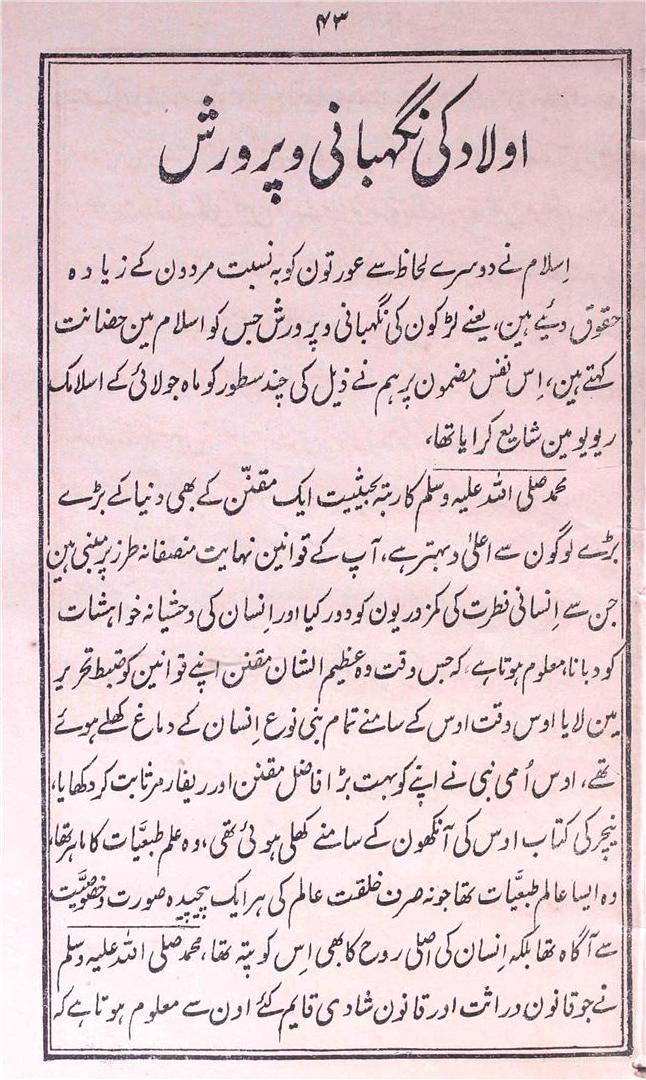 ۴۳
اولاد کی نگہبانی و پرورش
اِسلام نے دوسرے لحاظ سے عورتون کو بہ نسبت مردون کے زیادہ
حقوق دئیے ہین، یعنے لڑکون کی نگہبانی و پرورش جس کو اسلام مین حضانت
کہتے ہین، اِس نفس مضمون پر ہم نے ذیل کی چند سطور کو ماہ جولائی کے اسلامک
ریویو مین شایع کرایا تھا،
محمد صلی اللہ علیہ وسلم کا رتبہ بحیثیت ایک مقنّن کے بھی دنیا کے بڑے
بڑے لوگون سے اعلیٰ و بہتر ہے، آپ کے قوانین نہایت منصفانہ طرز پر مبنی ہین
جن سے اِنسانی فطرت کی کمزوریون کو دور کیا اور اِنسان کی وحشیانہ خواہشات
کو دبانا، معلوم ہوتا ہے، کہ جس وقت وہ عظیم الشان مقنن اپنے قوانین کو ضبط تحریر
مین لایا اوس وقت اوس کے سامنے تمام بنی نوع اِنسان کے دماغ کھلے ہوئے
تھے، اوس اُمی نبی نے اپنے کو بہت بڑا فاضل مقنن اور ریفارمر ثابت کر دکھایا،
نیچر کی کتاب اوس کی آنکھون کے سامنے کھلی ہوئی تھی، وہ علم طبعیَّات کا ماہر تھا،
وہ ایسا عالم طبعیَّات تھا جو نہ صرف خلقت عالم کی ہر ایک پیچیدہ صورت و خصوصیَّت
سے آگاہ تھا بلکہ اِنسان کی اصلی روح کا بھی اِس کو پتہ تھا، محمد صلی اللہ علیہ وسلم
نے جو قانون وراثت اور قانون شادی قایم کئے اون سے معلوم ہوتا ہے کہ